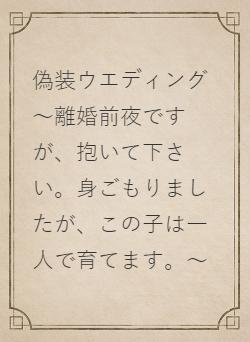 偽装ウエディング
～離婚前夜です
が、抱いて下さ
い。身ごもりまし
たが、この子は一
人で育てます。～